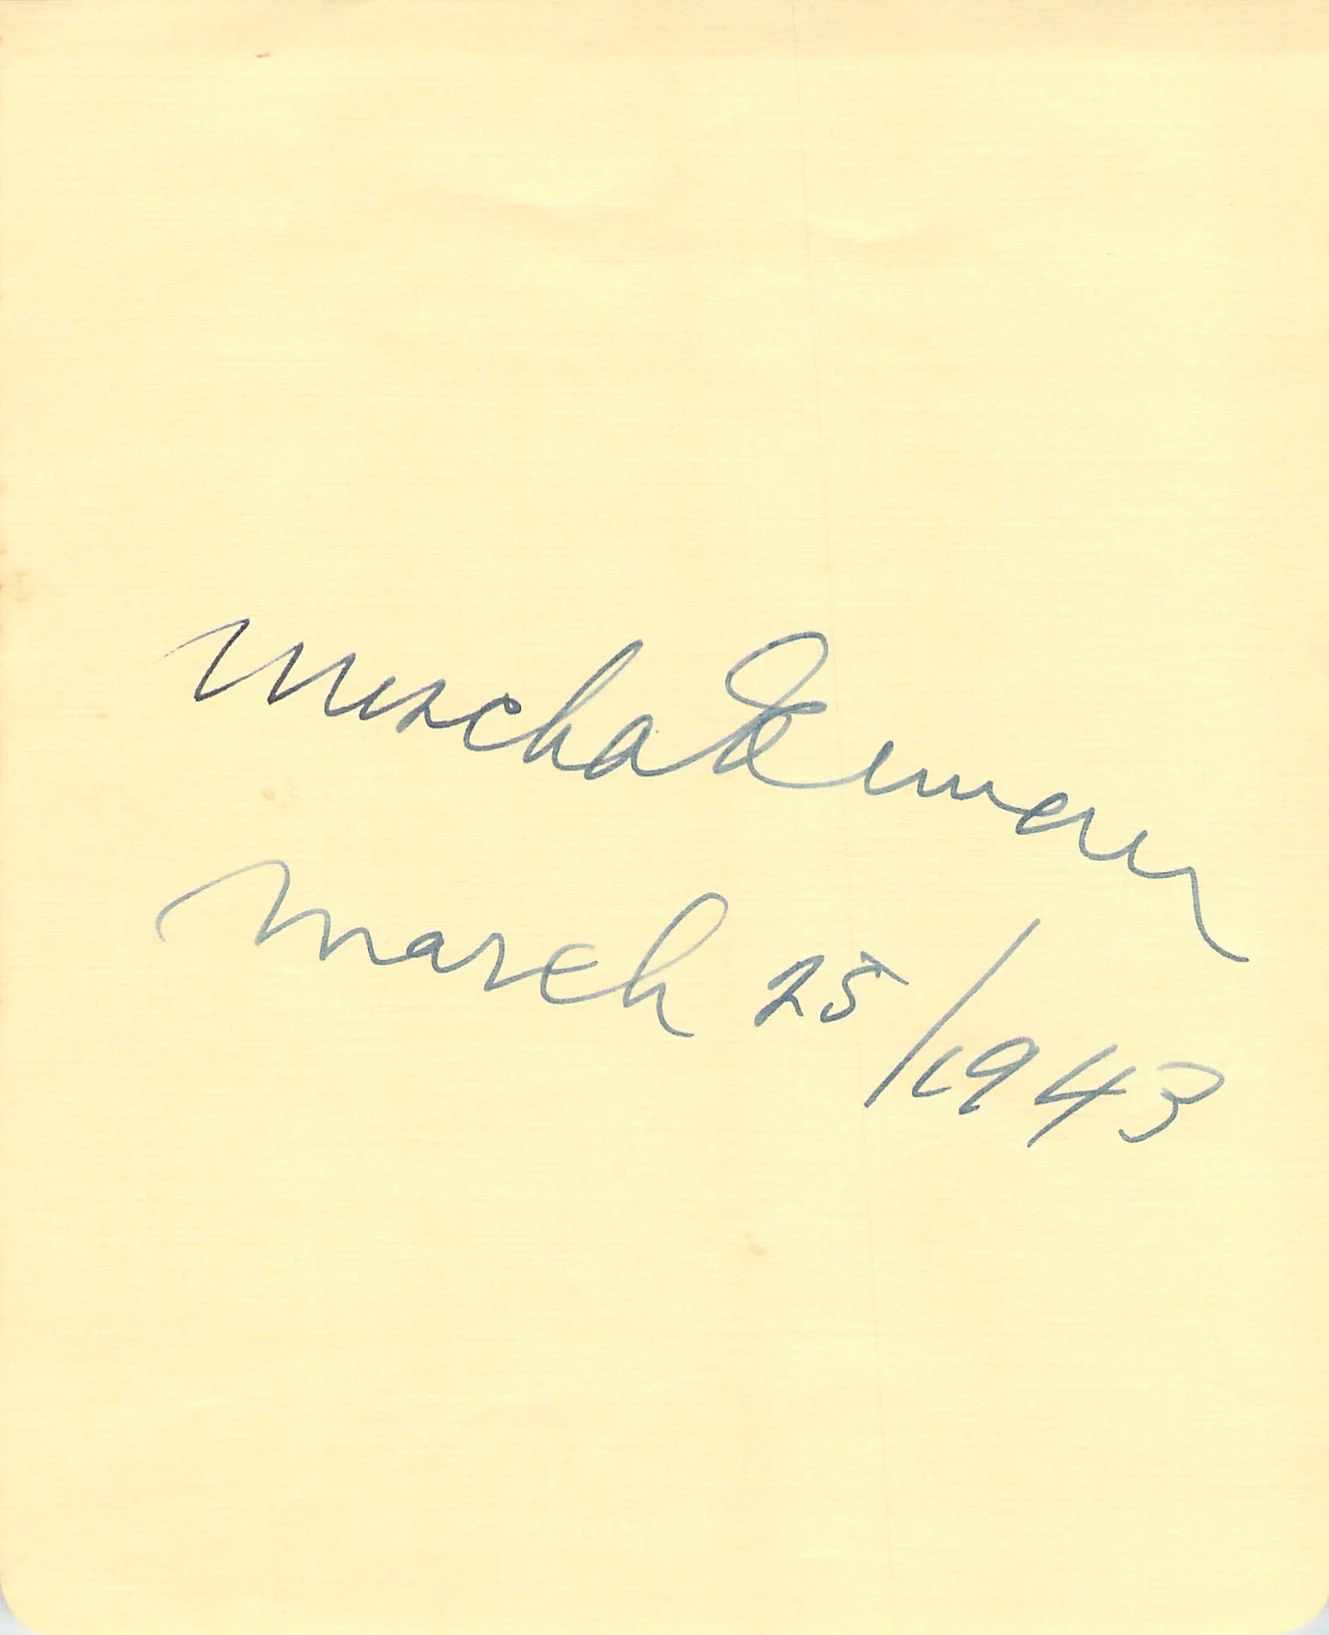 Mischa Elman
March 25/1943